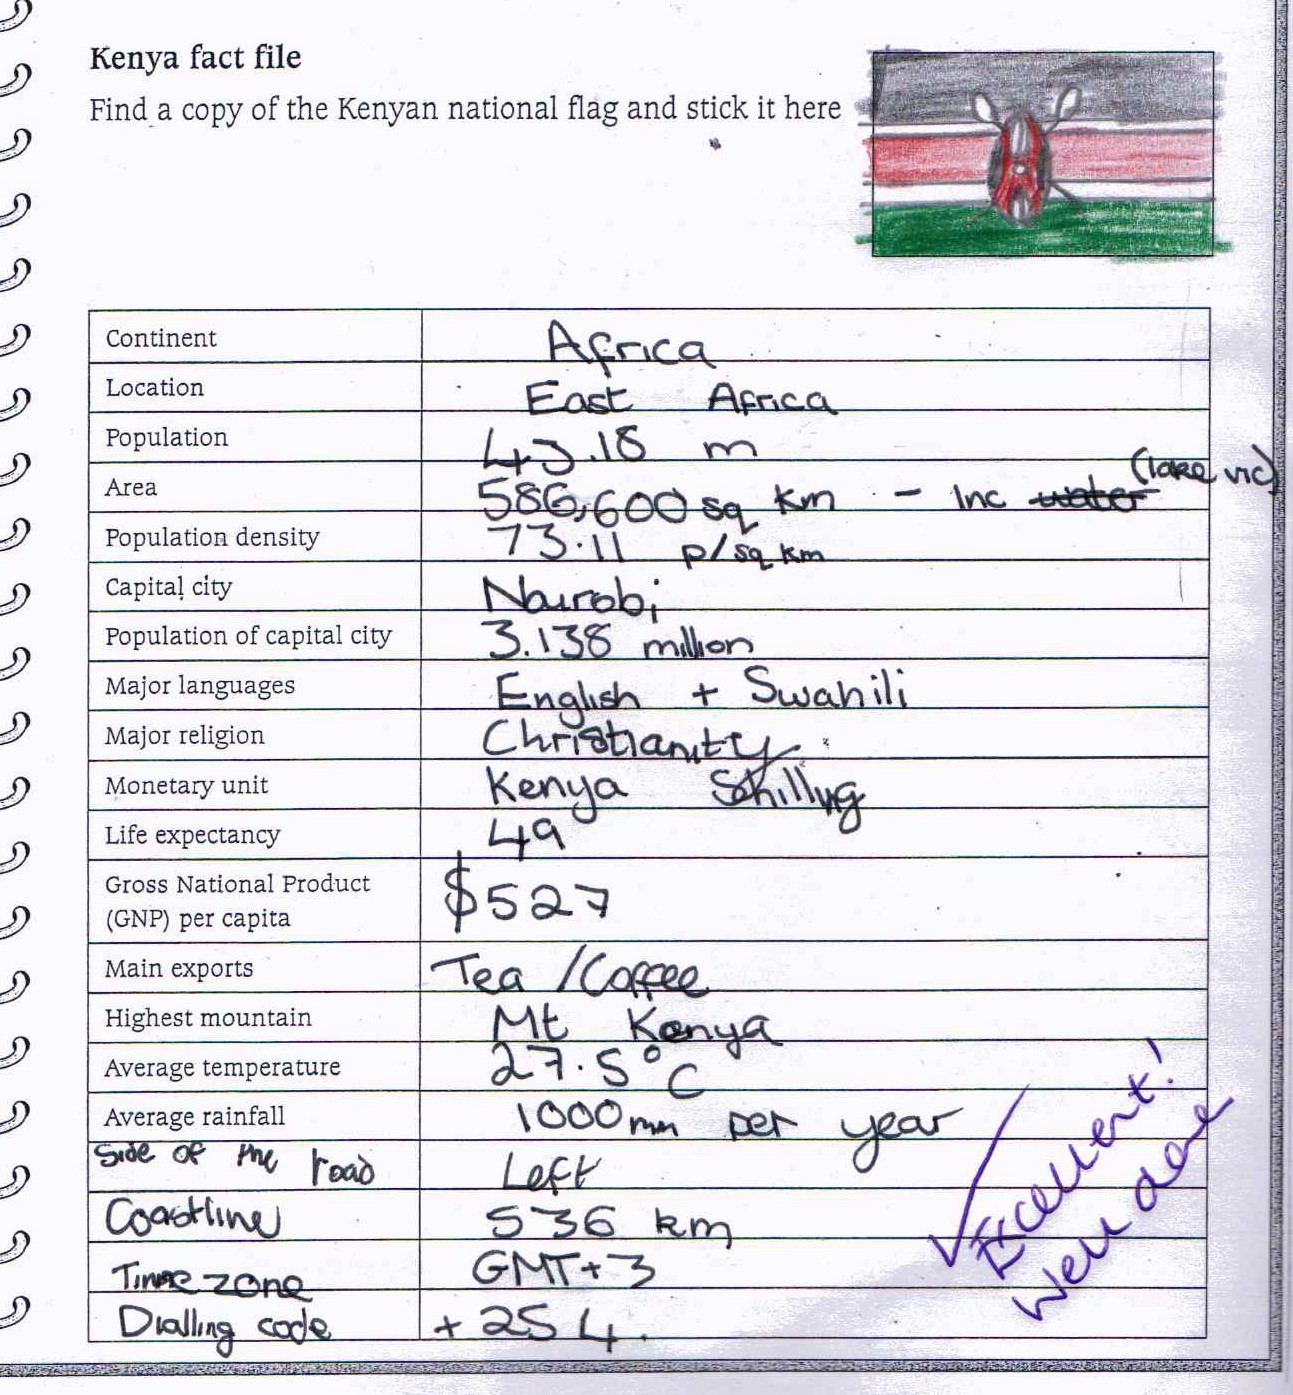 Kenya fact file
Find a copy of the Kenyan national flag and stick it here
Continent Africa
Location East Africa
Population 43.18 m
(lake vic)
Area 586,600 sq km - Inc water
Population density 73.11 p/sq km
Capital city Nairobi
Population of capital city 3.138 million
Major languages English + Swahili
Major religion Christianity
Monetary unit Kenya Schilling
Life expectancy 49
Gross National Product
(GNP) per capita $527
Main exports Tea / Coffee
Highest mountain Mt Kenya
Average temperature 27.5°C
Average rainfall 1000mm per year
Side of the road Left
Coastline 536 km
Time zone GMT+3
Dialling code +254.
Excellent!
Well done